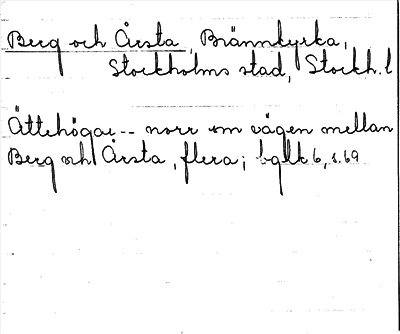 Berg och Årsta, Brännkyrka,
Stockholms stad, Stockh.l
Ättehögar -- norr om vägen mellan
Berg och Årsta, flera; bglt 6, s.69